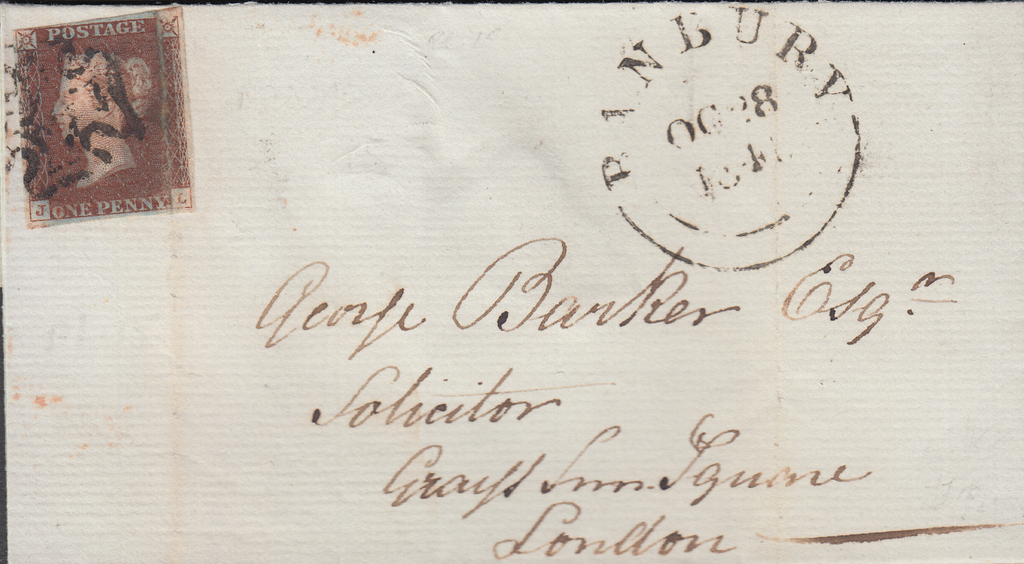 POSTAGE
J ONE PENNY L
BANBURY
OC 28
1841
George Barker Esqr.
Solicitor
Grays Inn Square
London